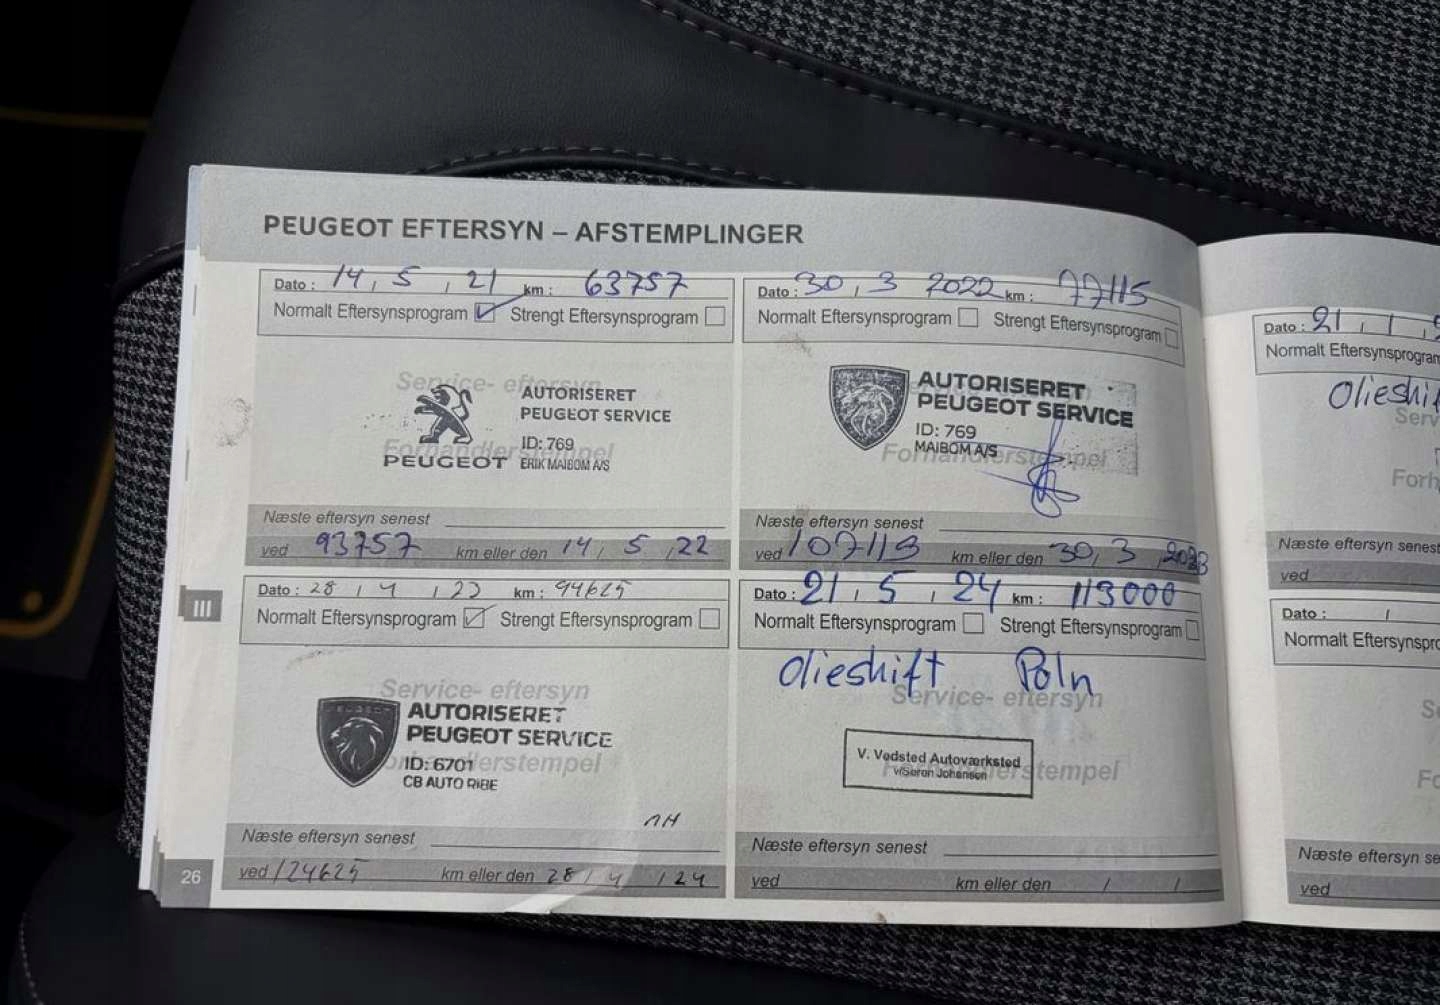 PEUGEOT EFTERSYN – AFSTEMPLINGER
Dato : 14 , 5 , 21 km : 63757
Normalt Eftersynsprogram Strengt Eftersynsprogram
Service- eftersyn
Forhandlerstempel
AUTORISERET
PEUGEOT SERVICE
ID: 769
PEUGEOT ERIK MAIBOM A/S
Næste eftersyn senest
ved 93757 km eller den 14 , 5 , 22
Dato : 30 , 3 2022 km : 77115
Normalt Eftersynsprogram Strengt Eftersynsprogram
AUTORISERET
PEUGEOT SERVICE
ID: 769
MAIBOM A/S
Forhandlerstempel
Næste eftersyn senest
ved 107115 km eller den 30, 3 , 2023
Dato : 28 / 4 , 23 km : 94625
Normalt Eftersynsprogram Strengt Eftersynsprogram
Service- eftersyn
Forhandlerstempel
PEUGEOT
AUTORISERET
PEUGEOT SERVICE
ID: 6701
CB AUTO RIBE
Næste eftersyn senest
ved 124625 km eller den 28 / 4 / 24
Dato : 21 , 5 , 24 km : 113000
Normalt Eftersynsprogram Strengt Eftersynsprogram
Olieshift
Service- eftersyn
Forhandlerstempel
V. Vedsted Autoværksted
v/Søren Johansen
Næste eftersyn senest
ved km eller den / /
III
26
Dato : 21 , 1 ,
Normalt Eftersynsprogram
Næste eftersyn senest
ved
Dato : /
Normalt
Næste eftersyn
ved